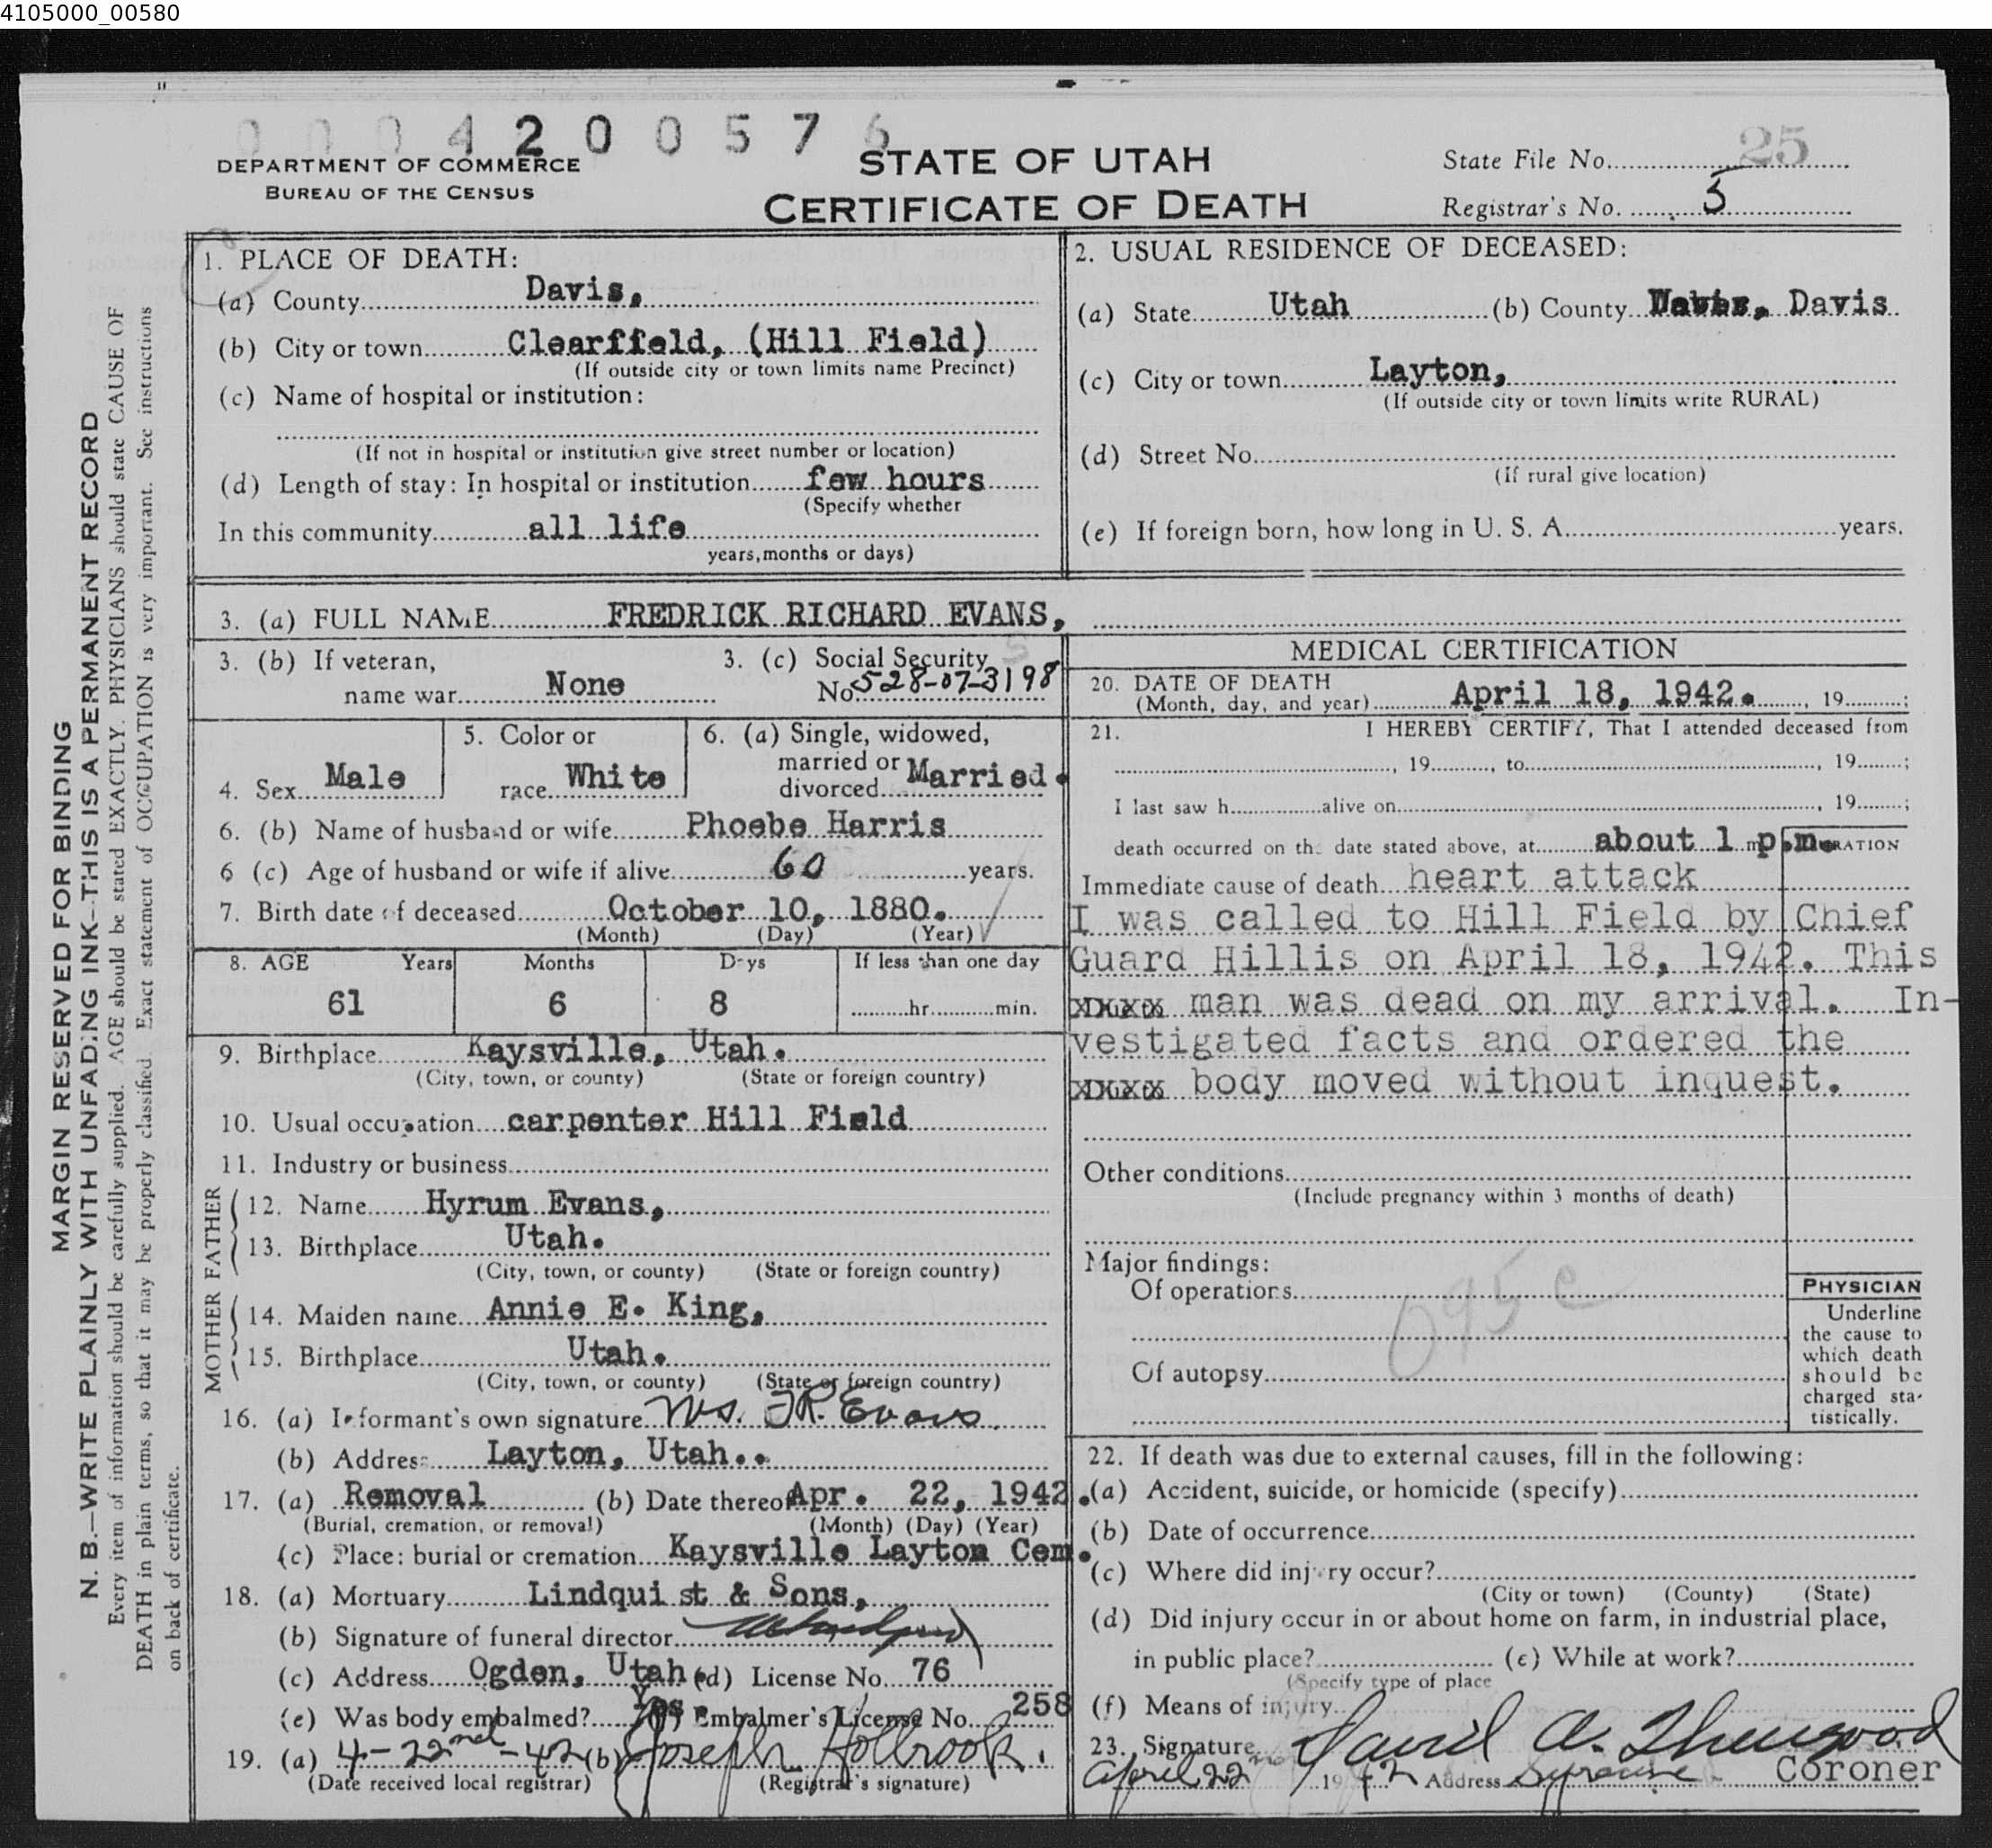 4105000_00580
0004200576
DEPARTMENT OF COMMERCE
BUREAU OF THE CENSUS
STATE OF UTAH
CERTIFICATE OF DEATH
State File No. 25
Registrar's No. 5
MARGIN RESERVED FOR BINDING
N. B.—WRITE PLAINLY WITH UNFADING INK—THIS IS A PERMANENT RECORD
Every item of information should be carefully supplied. AGE should be stated EXACTLY. PHYSICIANS should state CAUSE OF
DEATH in plain terms, so that it may be properly classified. Exact statement of OCCUPATION is very important. See instructions
on back of certificate.
1. PLACE OF DEATH:
(a) County Davis,
(b) City or town Clearffeld, (Hill Field)
(If outside city or town limits name Precinct)
(c) Name of hospital or institution:
(If not in hospital or institution give street number or location)
(d) Length of stay: In hospital or institution few hours
(Specify whether
In this community all life
years, months or days)
2. USUAL RESIDENCE OF DECEASED:
(a) State Utah (b) County Davis
(c) City or town Layton,
(If outside city or town limits write RURAL)
(d) Street No.
(If rural give location)
(e) If foreign born, how long in U. S. A. years.
3. (a) FULL NAME FREDRICK RICHARD EVANS,
3. (b) If veteran,
name war None
3. (c) Social Security
No. 528-07-3198
4. Sex Male
5. Color or
race White
6. (a) Single, widowed,
married or
divorced Married.
6. (b) Name of husband or wife Phoebe Harris
6 (c) Age of husband or wife if alive 60 years.
7. Birth date of deceased October 10, 1880.
(Month) (Day) (Year)
8. AGE Years Months Days If less than one day
61 6 8 hr. min.
9. Birthplace Kaysville, Utah.
(City, town, or county) (State or foreign country)
10. Usual occupation carpenter Hill Field
11. Industry or business
FATHER
12. Name Hyrum Evans,
13. Birthplace Utah.
(City, town, or county) (State or foreign country)
MOTHER
14. Maiden name Annie E. King,
15. Birthplace Utah.
(City, town, or county) (State or foreign country)
16. (a) Informant's own signature Mrs. F R. Evans
(b) Address Layton, Utah..
17. (a) Removal (b) Date thereof Apr. 22, 1942.
(Burial, cremation, or removal) (Month) (Day) (Year)
(c) Place: burial or cremation Kaysville Layton Cem.
18. (a) Mortuary Lindquist & Sons,
(b) Signature of funeral director
(c) Address Ogden, Utah. (d) License No. 76
(e) Was body embalmed? Yes (f) Embalmer's License No. 258
19. (a) 4-22nd-42 (b) Joseph Holbrook.
(Date received local registrar) (Registrar's signature)
MEDICAL CERTIFICATION
20. DATE OF DEATH
(Month, day, and year) April 18, 1942. , 19 ;
21. I HEREBY CERTIFY, That I attended deceased from
, 19 , to , 19 ;
I last saw h alive on , 19 ;
death occurred on the date stated above, at about 1 m p.m. DURATION
Immediate cause of death heart attack
I was called to Hill Field by Chief
Guard Hillis on April 18, 1942. This
xxxx man was dead on my arrival. In-
vestigated facts and ordered the
xxxx body moved without inquest.
Other conditions
(Include pregnancy within 3 months of death)
Major findings:
Of operations
095 c
Of autopsy
PHYSICIAN
Underline
the cause to
which death
should be
charged sta-
tistically.
22. If death was due to external causes, fill in the following:
(a) Accident, suicide, or homicide (specify)
(b) Date of occurrence
(c) Where did injury occur?
(City or town) (County) (State)
(d) Did injury occur in or about home on farm, in industrial place,
in public place? (e) While at work?
(Specify type of place
(f) Means of injury
23. Signature David A.
April 22nd 1942 Address Syracuse Coroner